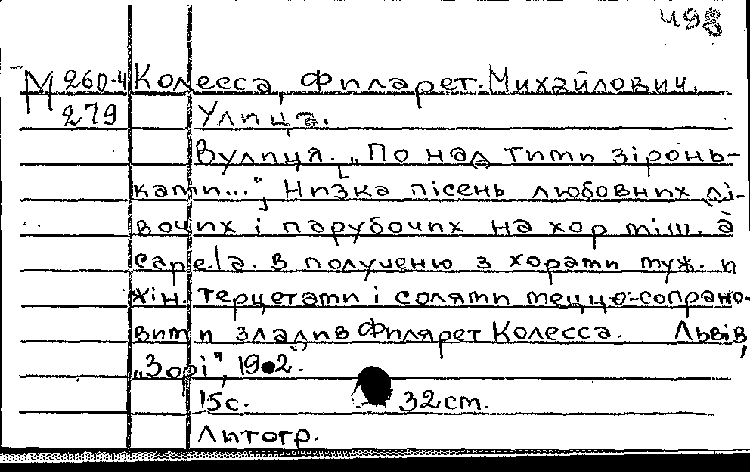 498
М 260-4 Колесса, Филарет Михайлович.
279 Улица.
Вулиця. „По над тими зіронь-
ками...", Низка пісень любовних ді-
вочих і парубочих на хор міш. à
capella. в получению з хорами муж. и
жін. терцетами і солями меццо-сопрано-
вими зладив Филярет Колесса. Львів,
„Зорі", 1902.
15с. 32см.
Литогр.